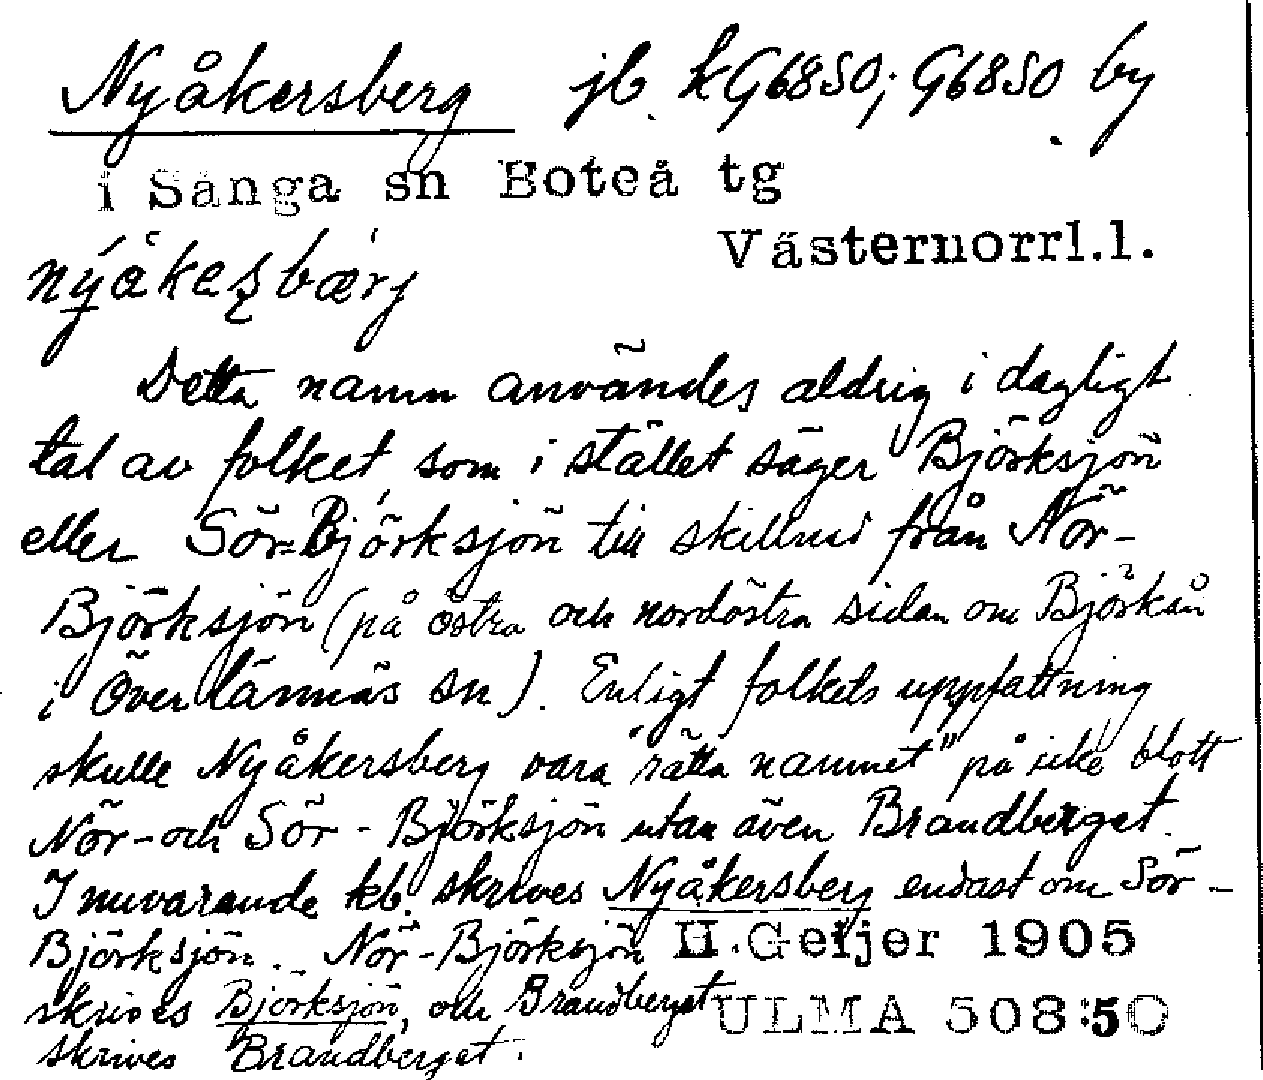 Nyåkersberg jb. k G6850; G6850 by
i Sånga sn Boteå tg
Västernorrl.l.
Detta namn användes aldrig i dagligt
tal av folket, som i stället säger Björksjön
eller Sör-Björksjön till skillnad från Nör-
Björksjön (på östra och nordöstra sidan om Björkån
i Överlännäs sn). Enligt folkets uppfattning
skulle Nyåkersberg vara "rätta namnet" på icke blott
Nör- och Sör-Björksjön utan även Brandberget.
I nuvarande kb. skrives Nyåkersberg endast om Sör-
Björksjön. Nör-Björksjön
skrives Björksjön, och Brandberget
skrives Brandberget.
H.Geijer 1905
ULMA 508:50